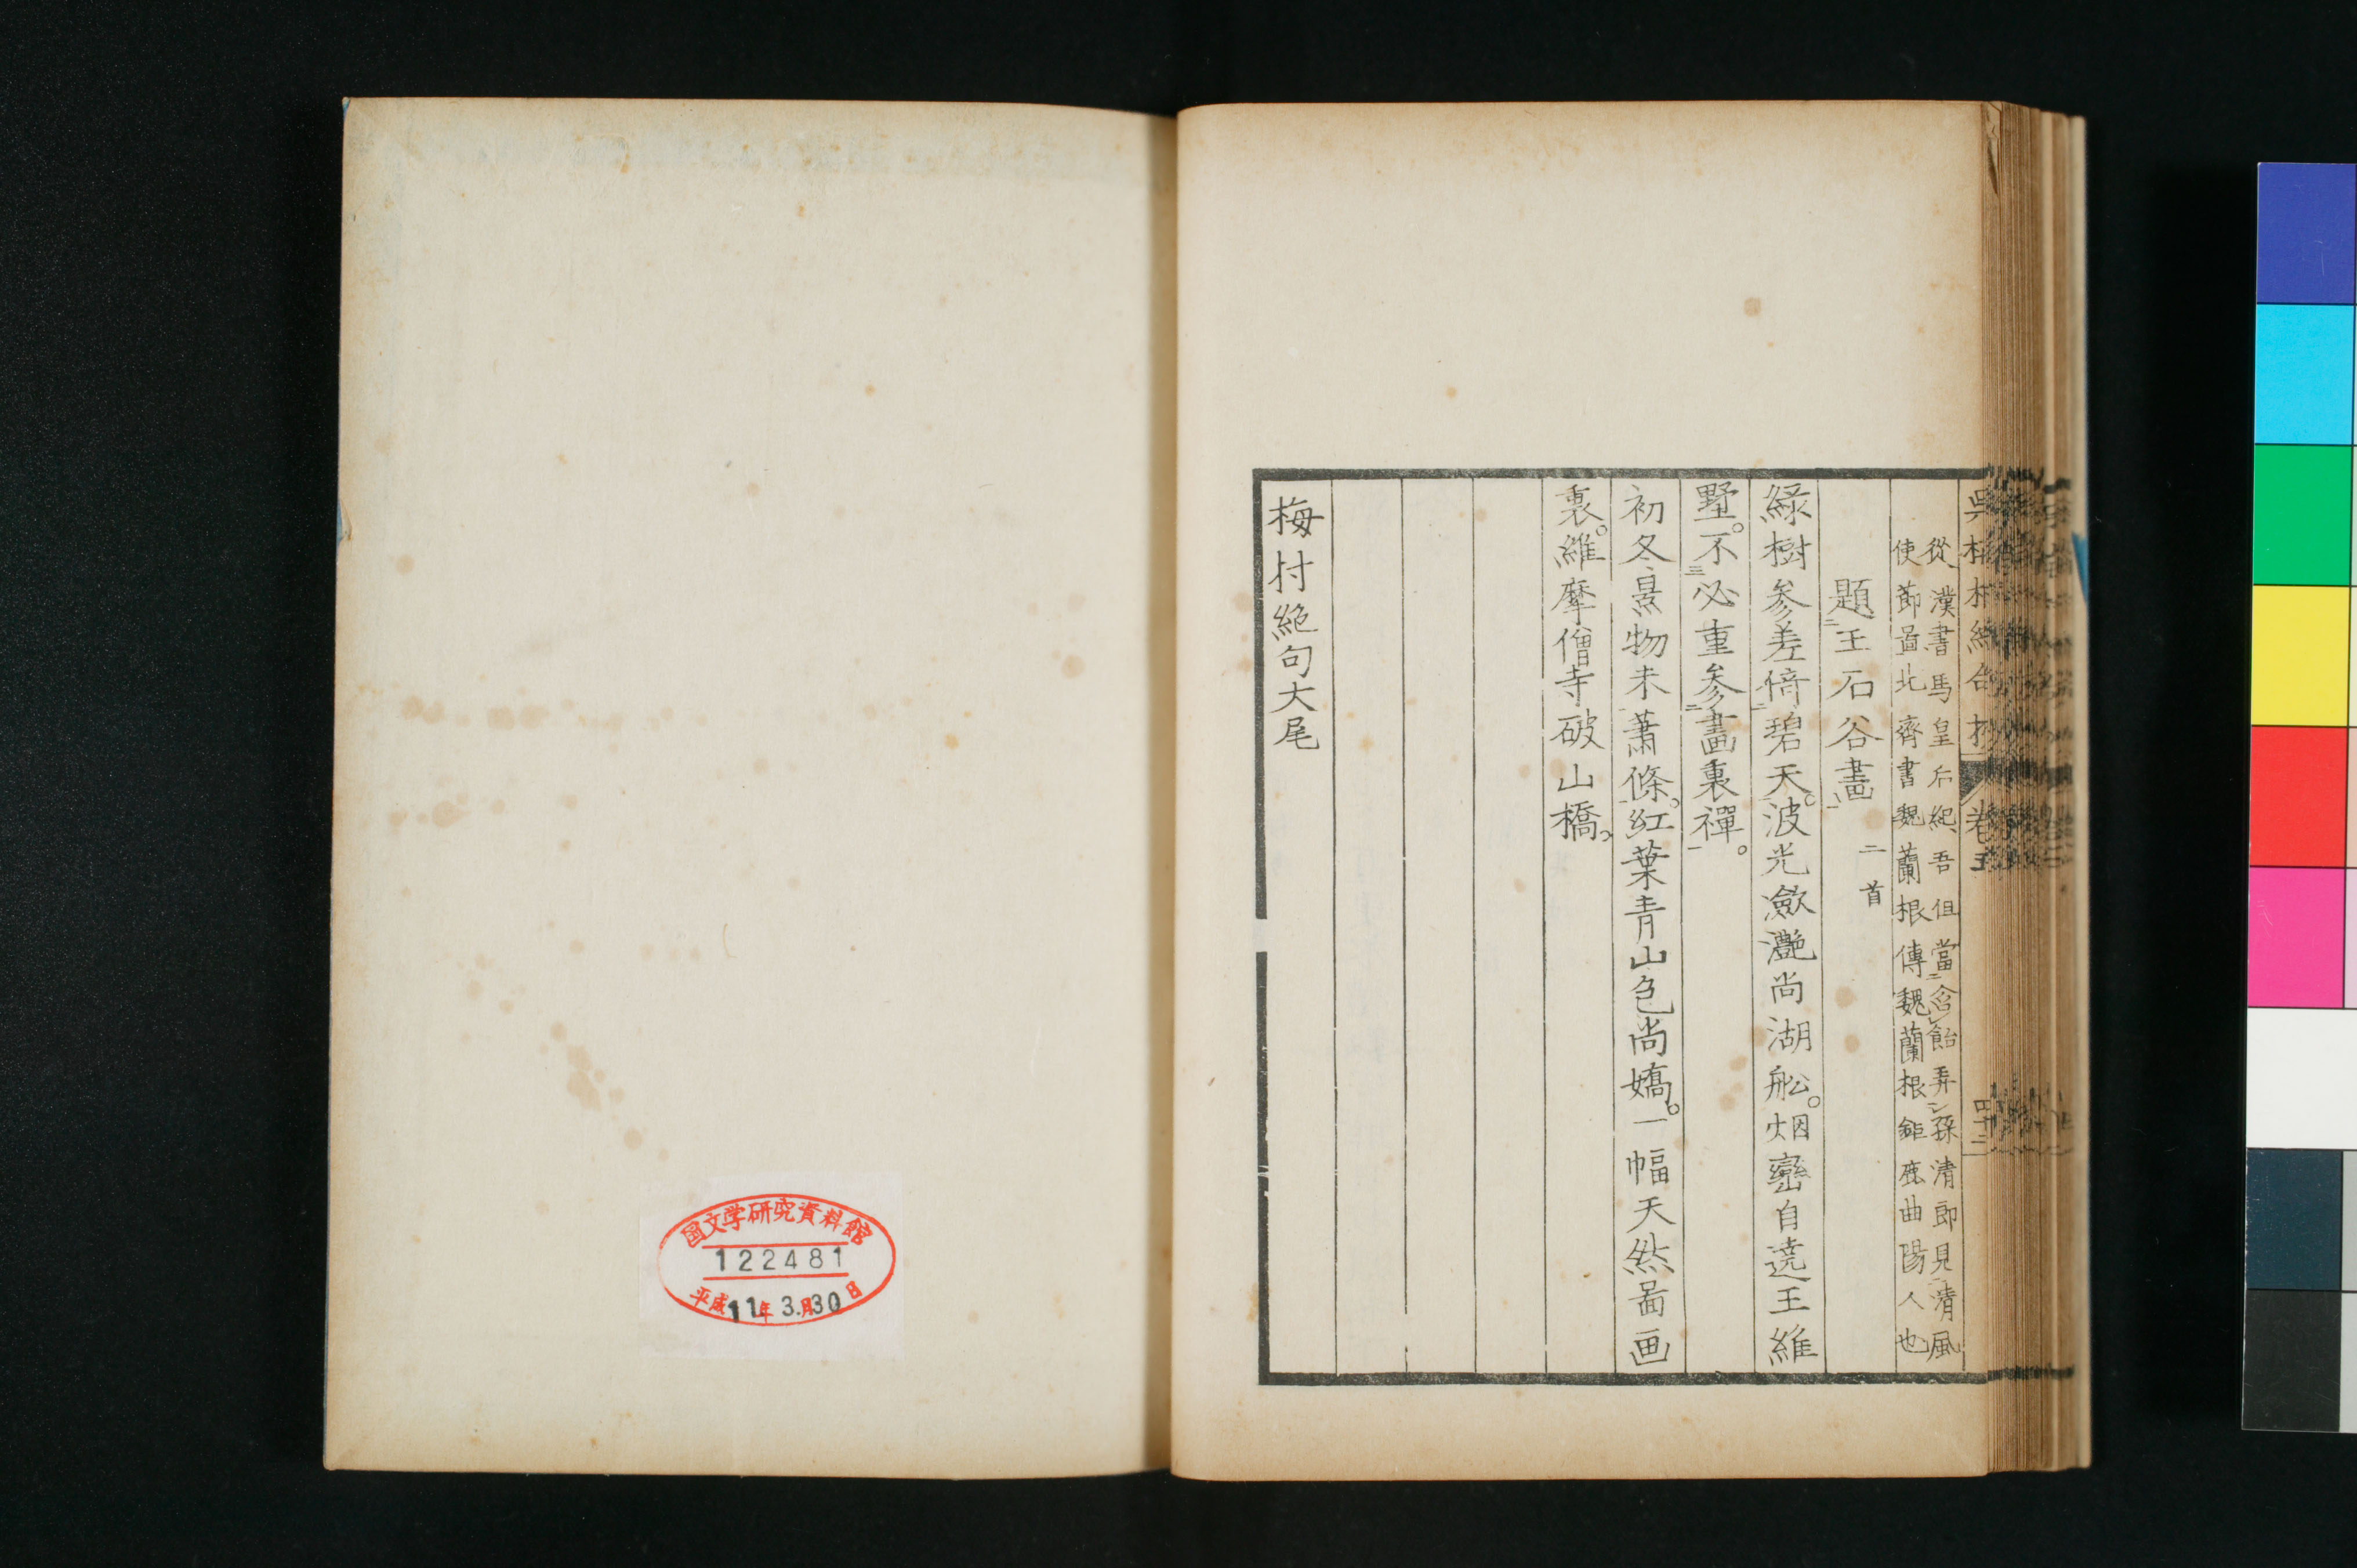 從漢書馬皇后紀吾但當含飴弄孫清郎見清風
使節圖北齊書魏蘭根傳魏蘭根鉅鹿曲陽人也
題王石谷畫 二首
綠樹參差倚碧天。波光瀲灔尚湖船。烟巒自遶王維
墅。不必重參畫裏禪。
初冬景物未蕭條。紅葉青山色尚嬌。一幅天然啚画
裏。維摩僧寺破山橋。
梅村絶句大尾
国文学研究資料館
122481
平成11年3.月30日